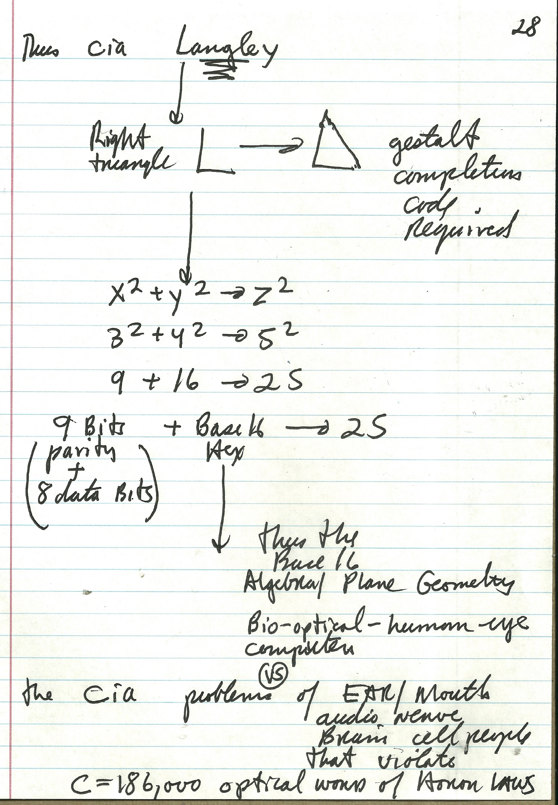 28
Thus cia Langley
Right
triangle
gestalt
completion
code
Required
x² + y² → z²
3² + 4² → 5²
9 + 16 → 25
9 Bits + Base 16 → 25
(parity Hex
+
8 data Bits)
thus the
Base 16
Algebra/Plane Geometry
Bio-optical-human-eye
computer
VS
the cia problems of EAR/Mouth
audio nerve
Brain cell people
that violate
C=186,000 optical words of Honor LAWS